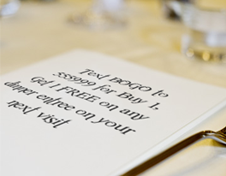 Text BOGO to
555999 for Buy 1,
Get 1 FREE on any
dinner entree on your
next visit!